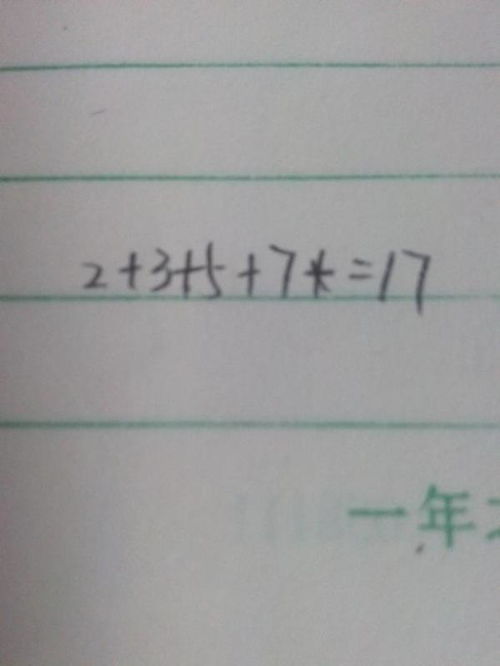 2+3+5+7*=17
一年